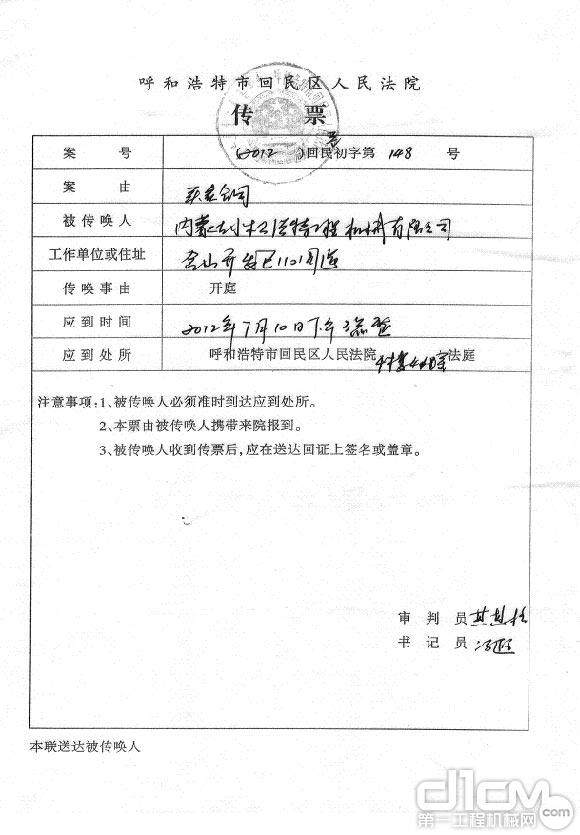 呼和浩特市回民区人民法院
传 票
案 号 (2012)回民初字第 148 号
案 由
被传唤人 内蒙古 工程机械有限公司
工作单位或住址 金山开发区110国道
传唤事由 开庭
应到时间 2012年7月10日下午 整
应到处所 呼和浩特市回民区人民法院 法庭
注意事项:1、被传唤人必须准时到达应到处所。
2、本票由被传唤人携带来院报到。
3、被传唤人收到传票后,应在送达回证上签名或盖章。
审 判 员
书 记 员
本联送达被传唤人
d1cm
.com
第一工程机械网